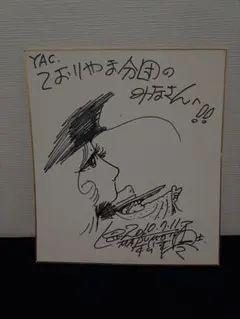 YAC.
こおりやま分団の
みなさんへ!!
2010.7.11